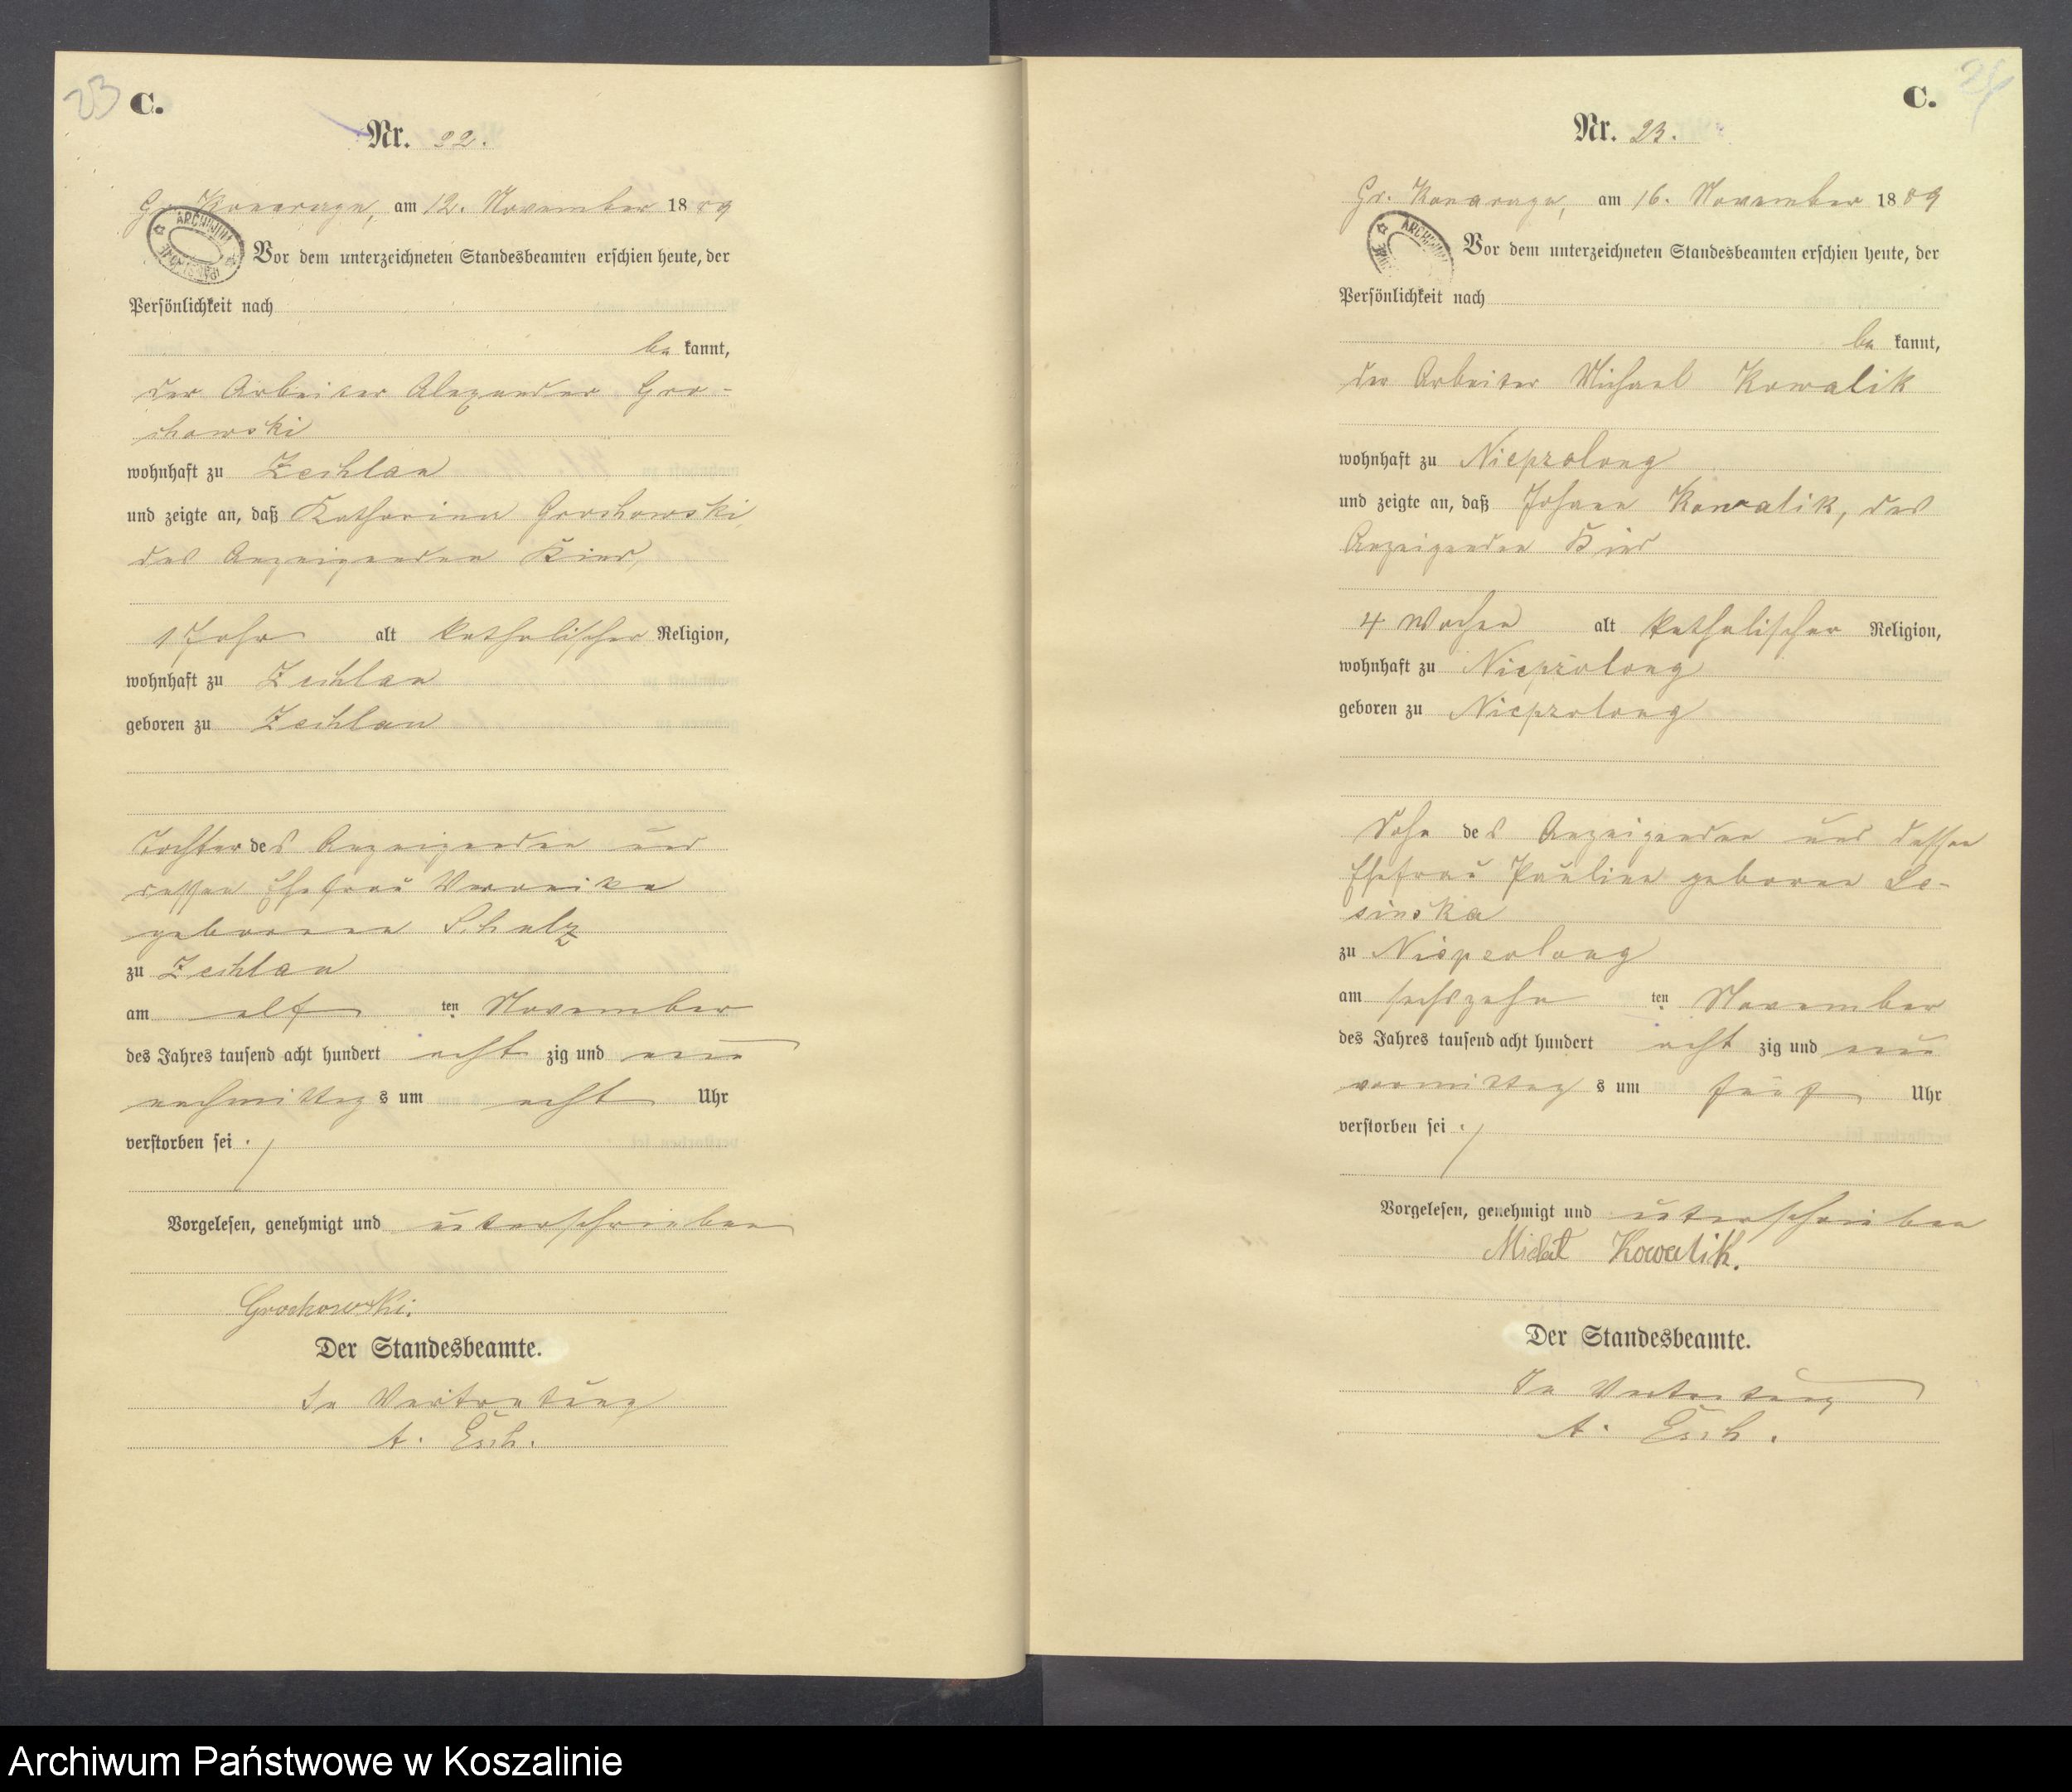 23 C.
Nr. 22.
Gr. Konarzyn, am 12. November 1889
ARCHIWUM
Vor dem unterzeichneten Standesbeamten erschien heute, der
Persönlichkeit nach
be kannt,
der Arbeiter Alexander Gro-
chowski
wohnhaft zu Zechlau
und zeigte an, daß Katharina Grochowski,
des Anzeigenden Kind,
1 Jahr alt katholischer Religion,
wohnhaft zu Zechlau
geboren zu Zechlau
Tochter des Anzeigenden und
dessen Ehefrau Veronika
geborenen Schulz
zu Zechlau
am elf ten November
des Jahres tausend acht hundert acht zig und neun
nachmittag s um acht Uhr
verstorben sei.
Vorgelesen, genehmigt und unterschrieben
Grochowski.
Der Standesbeamte.
In Vertretung
A. Esch.
C. 24
Nr. 23.
Gr. Konarzyn, am 16. November 1889
ARCHIWUM
Vor dem unterzeichneten Standesbeamten erschien heute, der
Persönlichkeit nach
be kannt,
der Arbeiter Michael Kowalik
wohnhaft zu Nieprzolong
und zeigte an, daß Johann Kowalik, des
Anzeigenden Kind
4 Wochen alt katholischer Religion,
wohnhaft zu
geboren zu
Sohn des Anzeigenden und dessen
Ehefrau Pauline geborne Le-
sinska
zu
am sechszehn ten November
des Jahres tausend acht hundert acht zig und neun
vormittag s um fünf Uhr
verstorben sei.
Vorgelesen, genehmigt und unterschrieben
Michal Kowalik.
Der Standesbeamte.
In Vertretung
A. Esch.
Archiwum Państwowe w Koszalinie